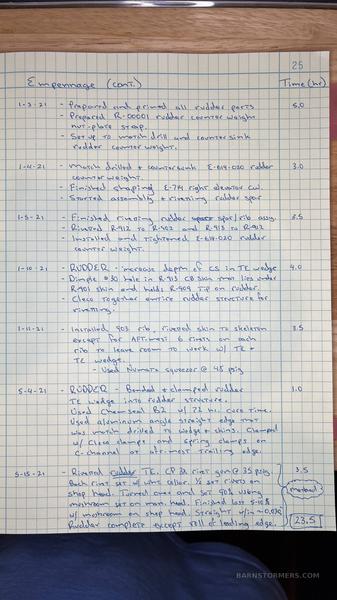 25
Empennage (cont.) Time (hr)
1-3-21 - Prepared and primed all rudder parts 5.0
- Prepared R-00001 rudder counterweight
nut-plate strap.
- Set up to match drill and countersink
rudder counterweight.
1-4-21 - Match drilled & countersunk E-614-020 rudder 3.0
counterweight.
- Finished shaping E-714 right elevator cw.
- Started assembly & riveting rudder spar
1-5-21 - Finished riveting rudder spar/rib assy. 3.5
- Riveted R-912 to R-902 and R-913 to R-912
- Installed and tightened E-614-020 rudder
counter weight.
1-10-21 - RUDDER - increase depth of CS in TE wedge 4.0
- Dimple #30 hole in R-913 CB skin that lies under
R-901 skin and holds R-909 TIP on rudder.
- Cleco together entire rudder structure for
riveting.
1-11-21 - Installed 903 rib, riveted skin to skeleton 3.5
except for AFTmost 6 rivets on each
rib to leave room to work w/ TE &
TE wedge.
- Used Numatx squeezer @ 45 psig
5-4-21 - RUDDER - Bonded & clamped rudder 1.0
TE wedge into rudder structure.
Used Chemseal B2 w/ 72 hr. cure time.
Used aluminum angle straight edge that
was match drilled to wedge & skins. Clamped
w/ Cleco clamps and spring clamps on
C-channel at aft-most trailing edge.
5-15-21 - Riveted rudder TE. CP 3x rivet gun @ 35 psig 3.5
Back rivet set w/ white collar. 1/2 set rivets on
shop head. Turned over and set 90% using
mushroom set on man. head. Finished last 5-10%
w/ mushroom on shop head. Straight w/in ~0.030
Rudder complete except roll of leading edge. 23.5
BARNSTORMERS.COM